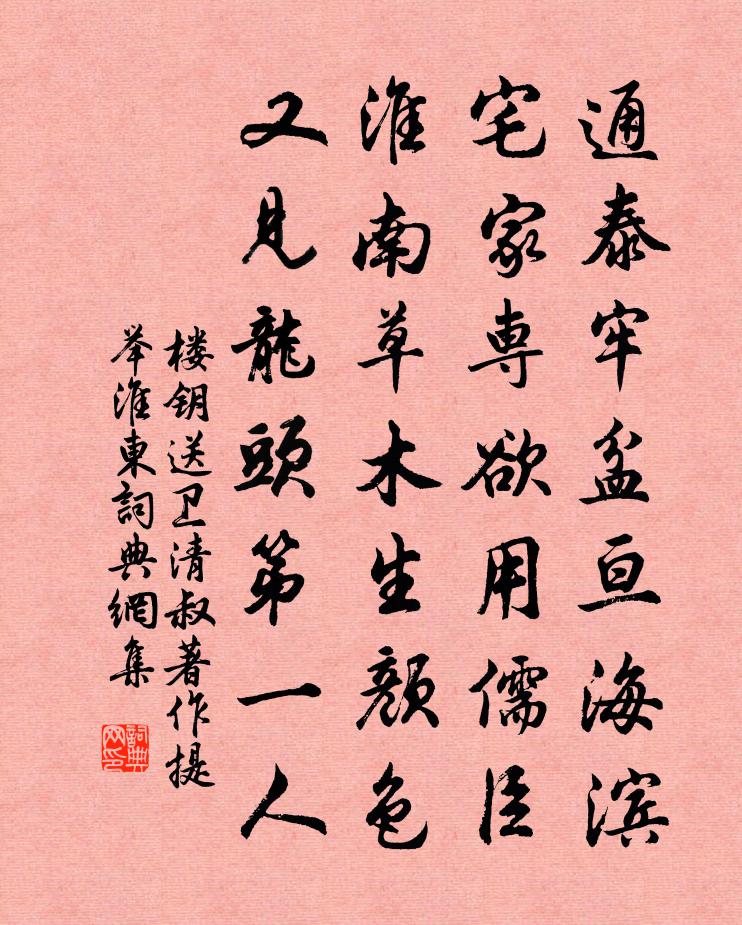 通泰牢盆亘海滨
宅家専欲用儒臣
淮南草木生顔色
又见龍頭第一人
楼钥送卫清叔著作提
举淮東詞典網集
詞典网印